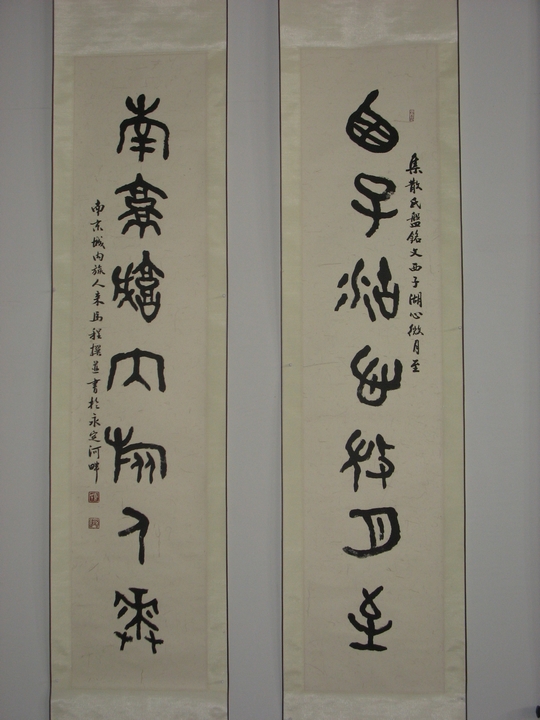 集散氏盤銘文西子湖心微月至
西子湖心微月至
南京城内旅人來
南京城内旅人来馬程撰並書於永定河畔